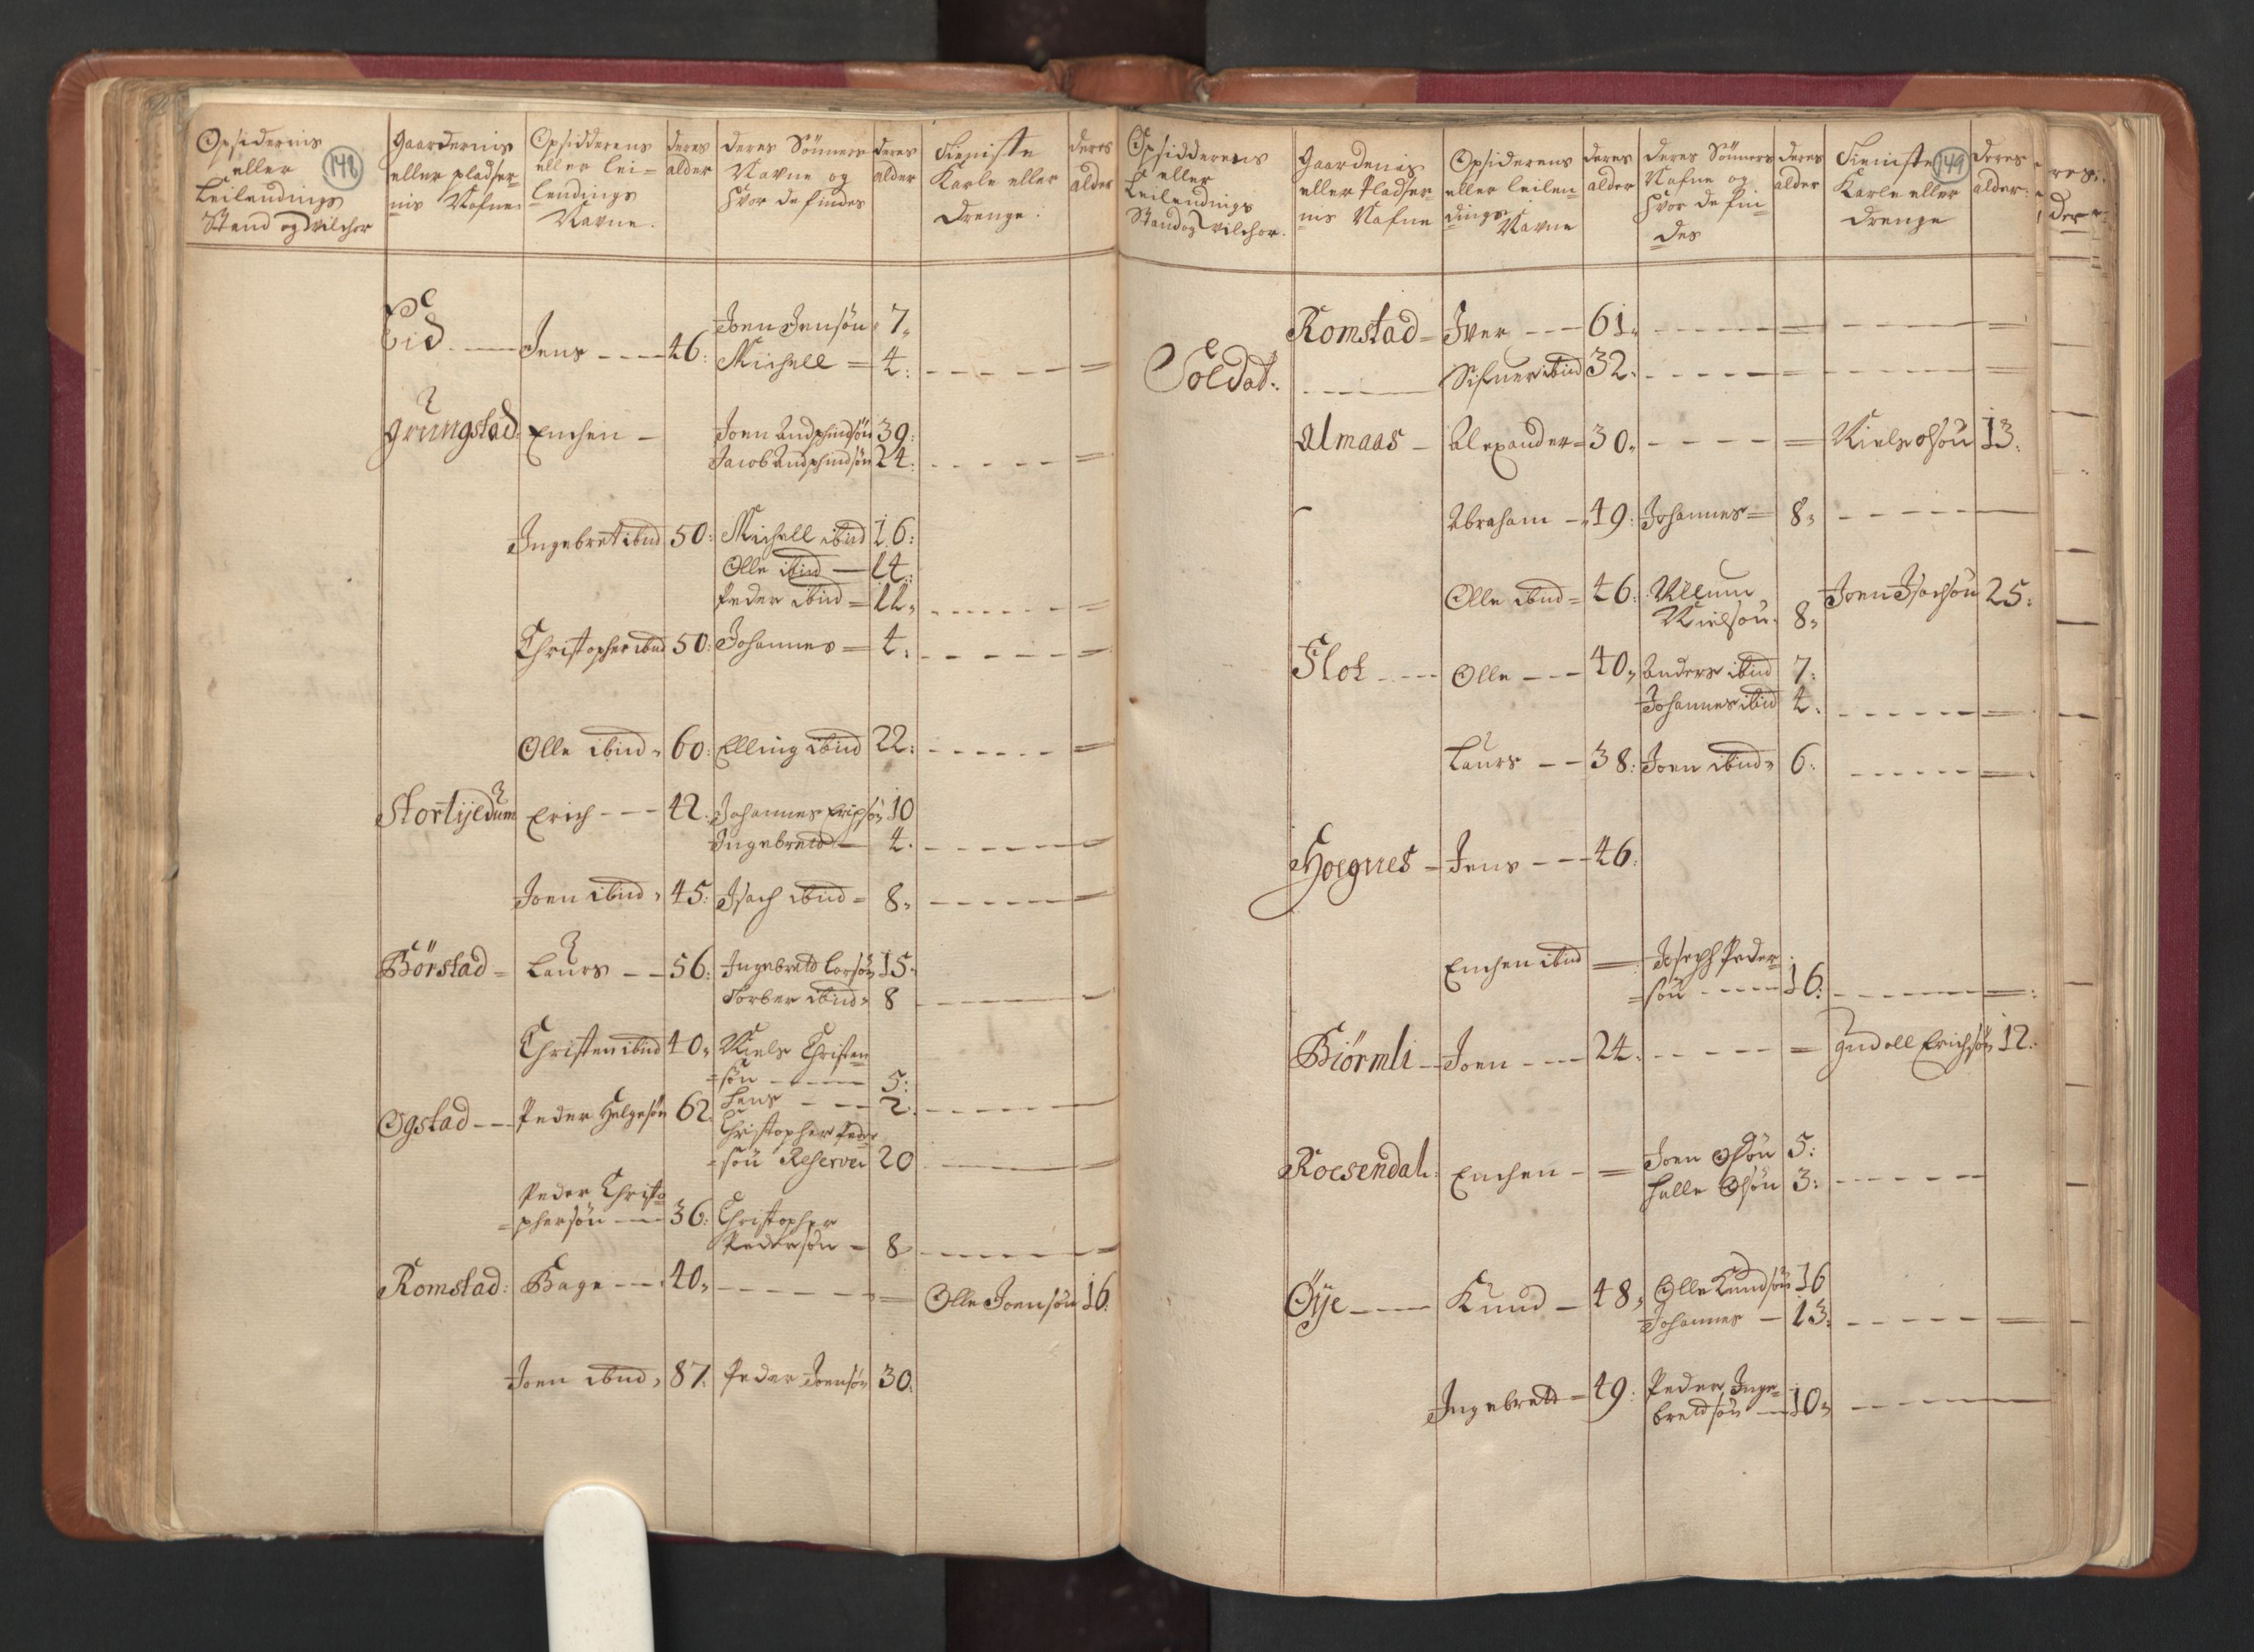 148
Opsidernis eller Leilendings Stand og vilchor
Gaardernis eller pladsernis Nafne
Opsidderens eller leilendings Navne.
deres alder
deres Sönners Navne og hvor de findes
deres alder
Tieniste Karle eller drenge.
deres alder
Eid. — Jens — 46: Joen Jensön 7,
Michell = 4: - - - - - =
Grungstad Enchen — Joen Andphindsön 39:
Jacob Andphindsön 24: - - - - - =
Ingebret ibid 50: Michell ibid 16:
Olle ibid — 14:
Peder ibid = 11, - - - - - =
Christopher ibid 50: Johannes = 4: - - - - - =
Olle ibid, 60: Elling ibid 22: - - - - - =
Stortijedum Erich - - - 42. Johannes Erichsön 10
Ingebretd — 4. - - - - - =
Joen ibid, 45: Isach ibid = 8, - - - - - =
Börstad = Laurs — 56: Ingebretd Larsön 15.
Torber ibid, 8 — —
Christen ibid 40, Niels Christen
=sön - - - - 5:
Jens - - - 2: - - - - —
Ogstad - - - Peder Helgesön 62 Christopher Peder
=sön Reserver 20 — =
Peder Christo
=phersön — 36: Christopher
Pedersön = 8 - - - - - =
Romstad: Bage - - - 40, - - - - - = Olle Joensön 16:
Joen ibid, 87: Peder Joensön 30:
149
Opsidderens eller Leilendings Stand og vilchor.
Gaardenis eller Pladsernis Nafne
Opsiderens eller leilendings Navne
deres alder
deres Sönners Nafne og hvor de findes
deres alder
Tieniste Karle eller drenge
deres alder:
Romstad = Iver - - - 61, - - - - - = - - - - - =
Soldat: - - - — Sifuer ibid 32: - - - - - = - - - - - =
Almaas — Alexander = 30, - - - - = Niels Olsön 13.
Abraham — 49: Johannes = 8, - - - - - —
Olle ibid = 46: Villum
Nielsön. 8, Joen Isachsön 25:
Flot - - - - Olle - - - 40, Anders ibid 7:
Johannes ibid 4. - - - - - =
Laurs - - 38: Joen ibid, 6: - - - - - =
Hoegnes = Jens - - - 46:
Enchen ibid = Joseph Peder
=sön - - - - 16: - - - - - =:
Biörmli — Joen - - - 24: - - - - - = Gudell Erichsön 12.
Roesendal: Enchen - = Joen Olsön 5:
Halle Olsön 3: - - - - -
Öije — Knud — 48, Olle Knudsön 16
Johannes — 13: - - - - - =
Ingebretd = 49: Peder Inge
bretdsön — 10, - - - - —